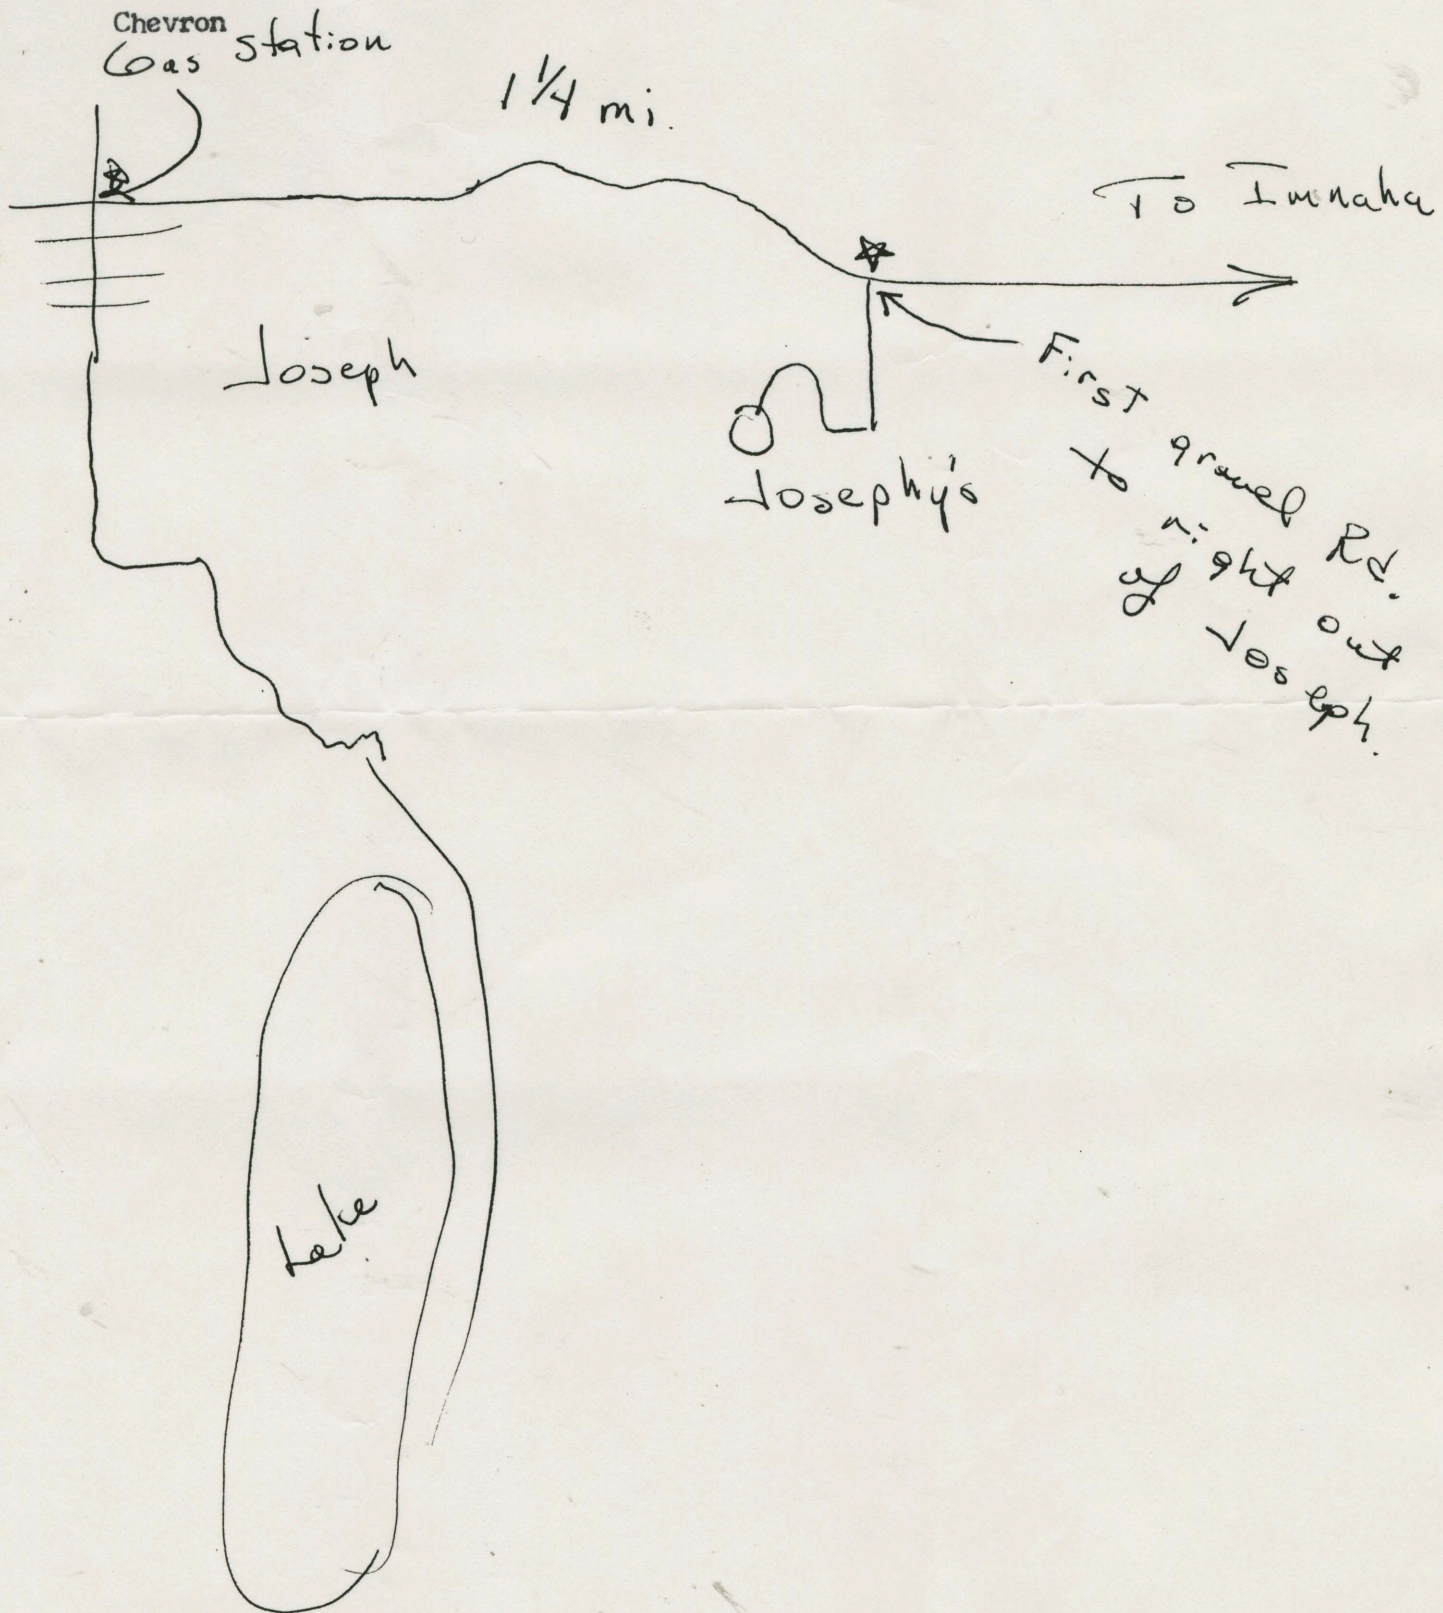 Chevron
Gas station
1 1/4 mi.
To Imnaha
Joseph
Josephy's
First gravel Rd.
to right out
of Joseph.
Lake